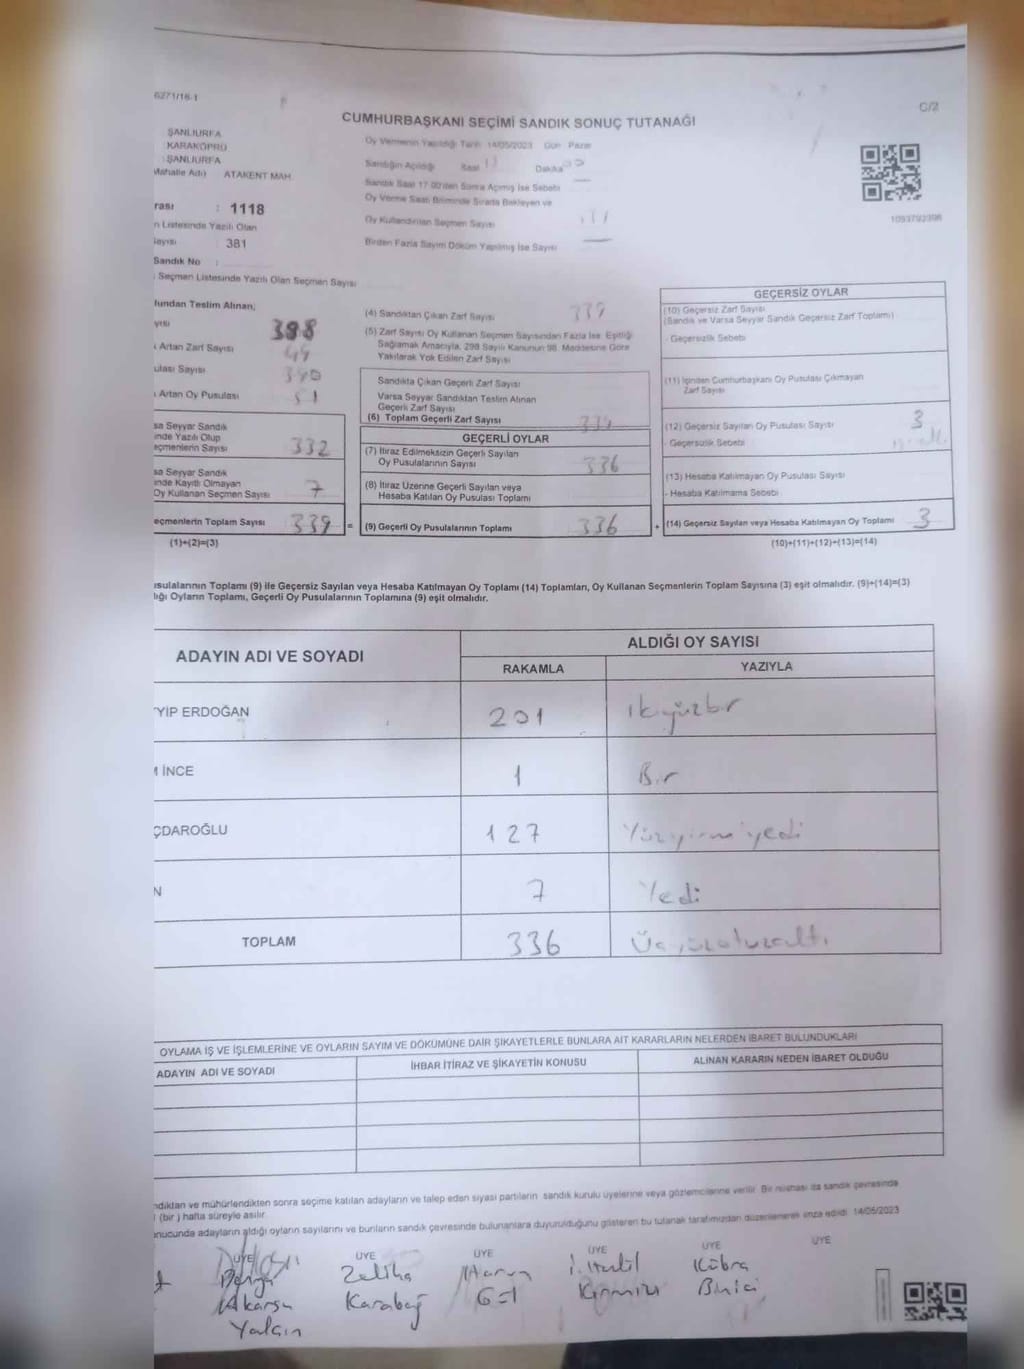 6271/18-1
C/2
CUMHURBAŞKANI SEÇİMİ SANDIK SONUÇ TUTANAĞI
ŞANLIURFA
KARAKÖPRÜ
ŞANLIURFA
Mahalle Adı ATAKENT MAH.
rası : 1118
n Listesinde Yazılı Olan
ayısı : 381
Sandık No :
Seçmen Listesinde Yazılı Olan Seçmen Sayısı
Oy Vermenin Yapıldığı Tarih 14/05/2023 Gün Pazar
Sandığın Açıldığı Saat Dakika
Sandık Saat 17:00'den Sonra Açılmış İse Sebebi
Oy Verme Saati Bitiminde Sırada Bekleyen ve
Oy Kullandırılan Seçmen Sayısı
Birden Fazla Sayım Döküm Yapılmış İse Sayısı
1093792396
fundan Teslim Alınan;
yısı 398
Artan Zarf Sayısı 49
ulası Sayısı 390
Artan Oy Pusulası 51
sa Seyyar Sandık
inde Yazılı Olup
eçmenlerin Sayısı 332
sa Seyyar Sandık
inde Kayıtlı Olmayan
Oy Kullanan Seçmen Sayısı 7
eçmenlerin Toplam Sayısı 339 =
(1)+(2)=(3)
(4) Sandıktan Çıkan Zarf Sayısı 339
(5) Zarf Sayısı Oy Kullanan Seçmen Sayısından Fazla İse, Eşitliği
Sağlamak Amacıyla, 298 Sayılı Kanunun 98. Maddesine Göre
Yakılarak Yok Edilen Zarf Sayısı
Sandıkta Çıkan Geçerli Zarf Sayısı
Varsa Seyyar Sandıktan Teslim Alınan
Geçerli Zarf Sayısı
(6) Toplam Geçerli Zarf Sayısı 339
GEÇERLİ OYLAR
(7) İtiraz Edilmeksizin Geçerli Sayılan
Oy Pusulalarının Sayısı 336
(8) İtiraz Üzerine Geçerli Sayılan veya
Hesaba Katılan Oy Pusulası Toplamı
(9) Geçerli Oy Pusulalarının Toplamı 336 +
GEÇERSİZ OYLAR
(10) Geçersiz Zarf Sayısı
(Sandık ve Varsa Seyyar Sandık Geçersiz Zarf Toplamı)
- Geçersizlik Sebebi
(11) İçinden Cumhurbaşkanı Oy Pusulası Çıkmayan
Zarf Sayısı
(12) Geçersiz Sayılan Oy Pusulası Sayısı 3
- Geçersizlik Sebebi
(13) Hesaba Katılmayan Oy Pusulası Sayısı
- Hesaba Katılmama Sebebi
(14) Geçersiz Sayılan veya Hesaba Katılmayan Oy Toplamı 3
(10)+(11)+(12)+(13)=(14)
usulalarının Toplamı (9) ile Geçersiz Sayılan veya Hesaba Katılmayan Oy Toplamı (14) Toplamları, Oy Kullanan Seçmenlerin Toplam Sayısına (3) eşit olmalıdır. (9)+(14)=(3)
ığı Oyların Toplamı, Geçerli Oy Pusulalarının Toplamına (9) eşit olmalıdır.
ADAYIN ADI VE SOYADI
ALDIĞI OY SAYISI
RAKAMLA YAZIYLA
YİP ERDOĞAN 201 ikiyüzbir
İNCE 1 Bir
ÇDAROĞLU 127 Yüzyirmiyedi
N 7 Yedi
TOPLAM 336 Üçyüzotuzaltı
OYLAMA İŞ VE İŞLEMLERİNE VE OYLARIN SAYIM VE DÖKÜMÜNE DAİR ŞİKAYETLERLE BUNLARA AİT KARARLARIN NELERDEN İBARET BULUNDUKLARI
ADAYIN ADI VE SOYADI İHBAR İTİRAZ VE ŞİKAYETİN KONUSU ALINAN KARARIN NEDEN İBARET OLDUĞU
ndıktan ve mühürlendikten sonra seçime katılan adayların ve talep eden siyasi partilerin sandık kurulu üyelerine veya gözlemcilerine verilir. Bir nüshası da sandık çevresinde
(bir) hafta süreyle asılır.
nucunda adayların aldığı oyların sayılarını ve bunların sandık çevresinde bulunanlara duyurulduğunu gösteren bu tutanak tarafımızdan düzenlenerek imza edildi. 14/05/2023
ÜYE ÜYE ÜYE ÜYE ÜYE ÜYE
Zeliha Harun Kübra
Akarsu Karabağ Gül Kırmızı Binici
Yalçın